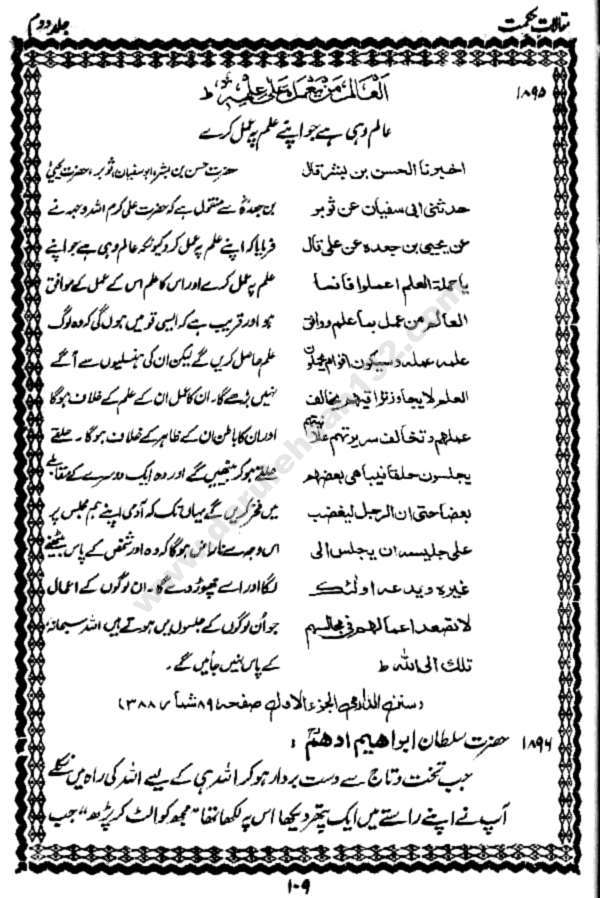 مقالات حکمت
جلد دوم
۱۸۹۵
اَلْعَالِمُ مَنْ يَّعْمَلُ عَلىٰ عِلْمِهٖ ط
عالم وہی ہے جو اپنے علم پر عمل کرے
اخبرنا الحسن بن بشر قال
حدثنی ابی سفیان عن ثوبر
عن یحییٰ بن جعدہ عن علی قال
یا حملة العلم اعملوا فانما
العالم من عمل بما علم ووافق
علمه عمله وسیکون اقوام یحملون
العلم لا یجاوز تراقیھم یخالف
عملھم وتخالف سریرتھم علانیتھم
یجلسون حلقا فیباھی بعضھم
بعضا حتی ان الرجل لیغضب
علی جلیسه ان یجلس الی
غیرہ ویدعه اولٰئك
لا تصعد اعمالھم فی مجالسھم
تلك الی الله ط
حضرت حسن بن بشر، ابو سفیان، ثوبر، حضرت یحییٰ
بن جعدہؓ سے منقول ہے کہ حضرت علی کرم اللہ وجہہ نے
فرمایا کہ اپنے علم پر عمل کرو کیونکہ عالم وہی ہے جو اپنے
علم پر عمل کرے اور اس کا علم اس کے عمل کے موافق
ہو اور قریب ہے کہ ایسی قومیں ہوں گی کہ وہ لوگ
علم حاصل کریں گے لیکن ان کی ہنسلیوں سے آگے
نہیں بڑھے گا۔ ان کا عمل ان کے علم کے خلاف ہوگا
اور ان کا باطن ان کے ظاہر کے خلاف ہوگا۔ حلقے
حلقے ہو کر بیٹھیں گے اور وہ ایک دوسرے کے مقابلے
میں فخر کریں گے یہاں تک کہ آدمی اپنے ہم مجلس پر
اس وجہ سے ناراض ہوگا کہ وہ اور شخص کے پاس بیٹھنے
لگا اور اسے چھوڑ دے گا۔ ان لوگوں کے اعمال
جو اُن لوگوں کے مجلسوں میں ہوتے ہیں اللہ سبحانہٗ
کے پاس نہیں جائیں گے۔
(سنن الدارمی الجزء الاول صفحہ ۸۹ شمار ۳۸۸)
۱۸۹۶ حضرت سلطان ابراھیم ادھمؒ :
جب تخت و تاج سے دست بردار ہو کر اللہ ہی کے لیے اللہ کی راہ میں نکلے
آپ نے اپنے راستے میں ایک پتھر دیکھا اس پہ لکھا تھا "مجھ کو الٹ کر پڑھ" جب
۱۰۹